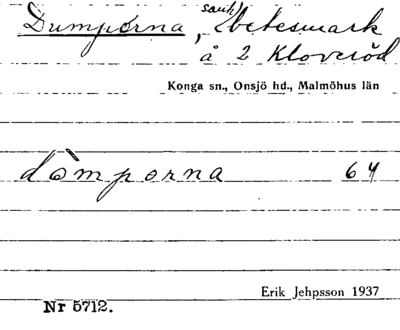 Dumporna, sank betesmark
å 2 Kloveröd
Konga sn., Onsjö hd., Malmöhus län
dòmporna 64
Erik Jehpsson 1937
Nr 5712.